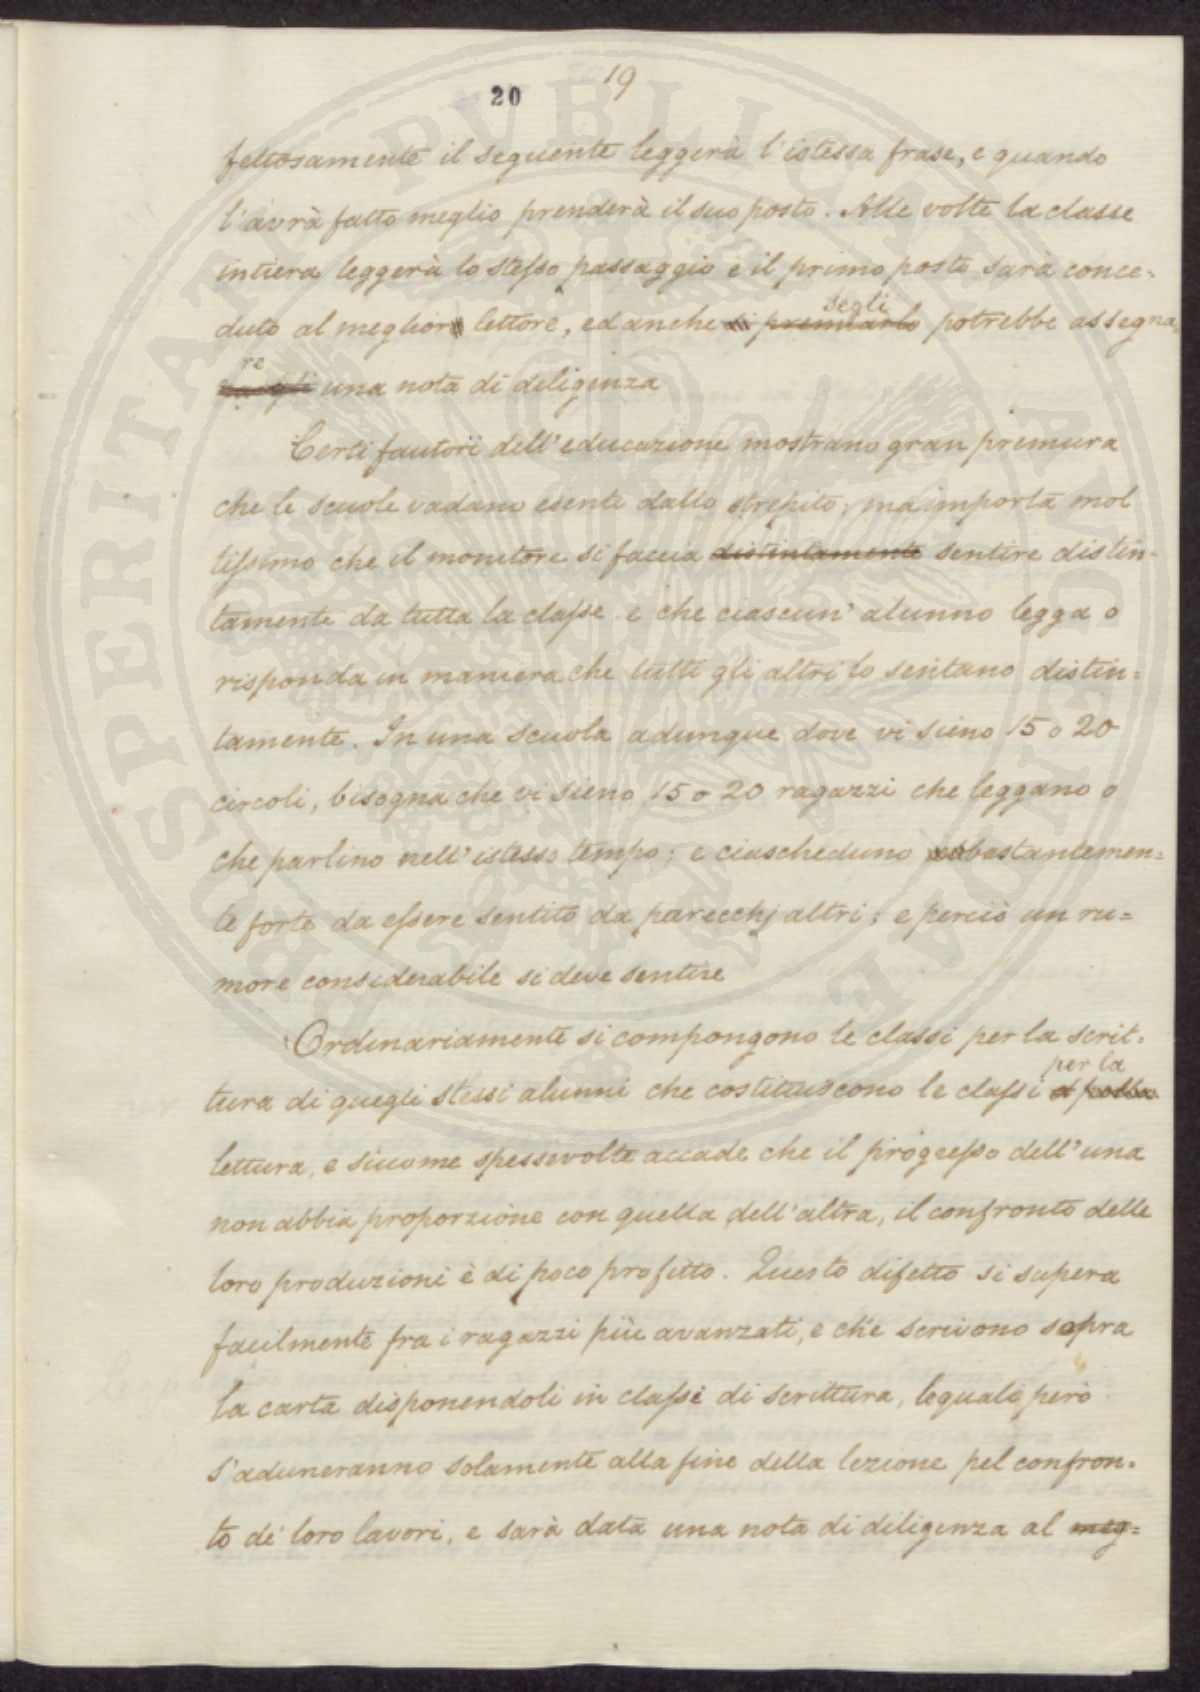 20 19
fettosamente il seguente leggerà l'istessa frase, e quando
l'avrà fatto meglio prenderà il suo posto. Alle volte la classe
intiera leggerà lo stesso passaggio e il primo posto sarà conce-
segli
duto al meglior lettore, ed anche si premiarlo potrebbe assegna
re
una nota di diligenza
Certi fautori dell'educazione mostrano gran premura
che le scuole vadano esenti dallo strepito, ma importa mol
tissimo che il monitore si faccia distintamente sentire distin-
tamente da tutta la classe e che ciascun' alunno legga o
risponda in maniera che tutti gli altri lo sentano distin-
tamente. In una scuola adunque dove vi sieno 15 o 20
circoli, bisogna che vi sieno 15 o 20 ragazzi che leggano o
che parlino nell'istesso tempo; e ciascheduno abbastantemen=
te forte da essere sentito da parecchj altri; e perciò un ru=
more considerabile si deve sentire
Ordinariamente si compongono le classi per la scrit-
per la
tura di quegli stessi alunni che costituiscono le classi
lettura, e siccome spessevolte accade che il progresso dell'una
non abbia proporzione con quella dell'altra, il confronto delle
loro produzioni è di poco profitto. Questo difetto si supera
facilmente fra i ragazzi più avanzati, e che scrivono sopra
la carta disponendoli in classi di scrittura, le quali però
s'aduneranno solamente alla fine della lezione pel confron-
to de' loro lavori, e sarà data una nota di diligenza al meg=
PROSPERITATI PUBLICAE AUGENDAE